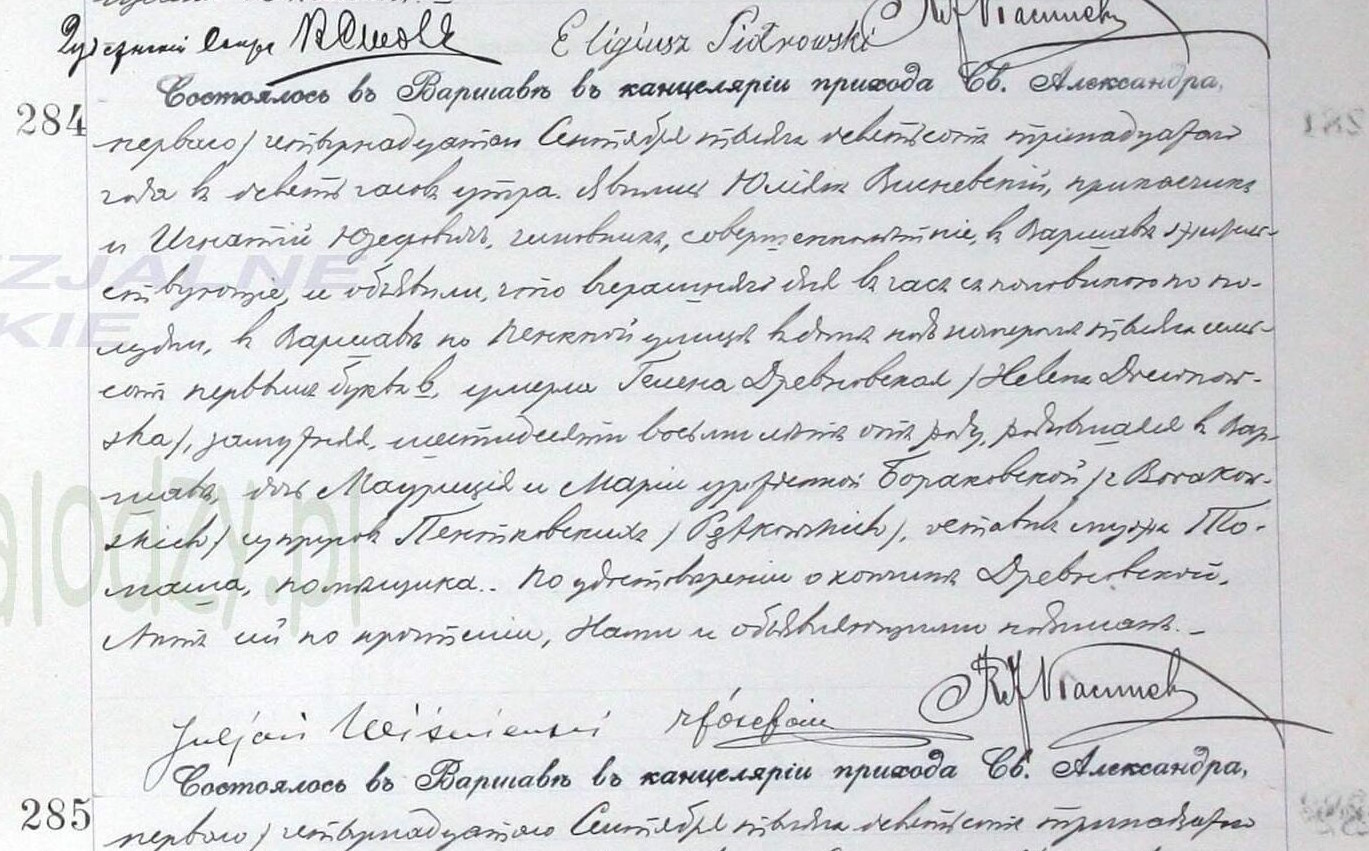 Eligiusz Piotrowski
Состоялось въ Варшавѣ въ канцеляріи прихода Св. Александра,
284
перваго / четырнадцатаго Сентября тысяча девятьсотъ тринадцатаго
года въ девять часовъ утра. Явились Юліянъ Висневскій, прикащикъ
и Игнатій Юзефовичъ, чиновникъ, совершеннолѣтніе, въ Варшавѣ житель-
ствующіе, и объявили, что вчерашняго дня въ часъ съ половиною по по-
лудни, въ Варшавѣ по Пенкной улицѣ въ домѣ подъ номеромъ тысяча семь-
сотъ первымъ буква в, умерла Гелена Древновская / Helena Drewnow-
ska /, замужняя, шестидесяти восьми лѣтъ отъ роду, родившаяся въ Вар-
шавѣ, дочь Мауриція и Маріи урожденной Бораковской / z Borakow-
skich / супруговъ Пентковскихъ / Piętkowskich /, оставивъ мужа То-
маша, помѣщика.. По удостовѣреніи о кончинѣ Древновской,
Актъ сей по прочтеніи, Нами и объявляющими подписанъ. –
Juljan Wiśniewski
Состоялось въ Варшавѣ въ канцеляріи прихода Св. Александра,
285
перваго / четырнадцатаго Сентября тысяча девятьсотъ тринадцатаго
ZJALNE
KIE
alodzy.pl